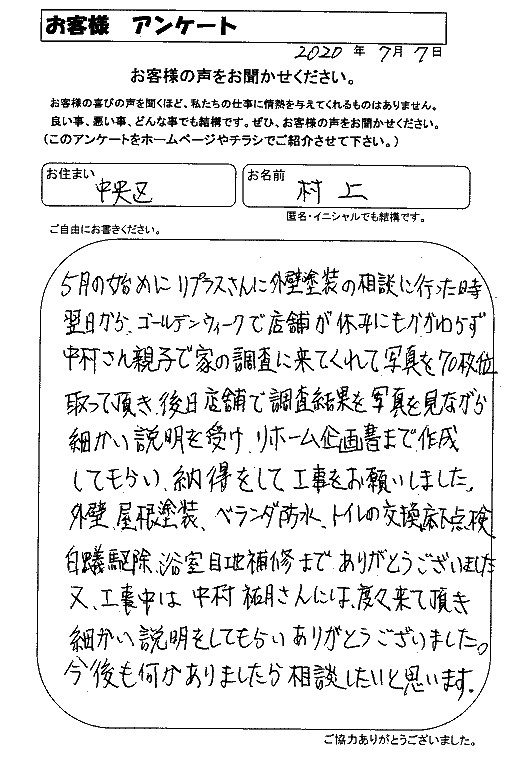 お客様 アンケート
2020 年 7月 7日
お客様の声をお聞かせください。
お客様の喜びの声を聞くほど、私たちの仕事に情熱を与えてくれるものはありません。
良い事、悪い事、どんな事でも結構です。ぜひ、お客様の声をお聞かせください。
(このアンケートをホームページやチラシでご紹介させて下さい。)
お住まい 中央区
お名前 村上
匿名・イニシャルでも結構です。
ご自由にお書きください。
5月の始めに リプラスさんに外壁塗装の相談に行った時
翌日から、ゴールデンウィークで店舗が休みにもかかわらず
中村さん親子で家の調査に来てくれて写真を70枚位
取って頂き、後日店舗で調査結果を写真を見ながら
細かい説明を受け、リホーム企画書まで作成
してもらい、納得をして工事をお願いしました。
外壁、屋根塗装、ベランダ防水、トイレの交換、床下点検
白蟻駆除、浴室目地補修まで ありがとうございました
又、工事中は 中村 祐月さんには、度々来て頂き
細かい説明をしてもらい ありがとうございました。
今後も何かありましたら相談したいと思います。
ご協力ありがとうございました。